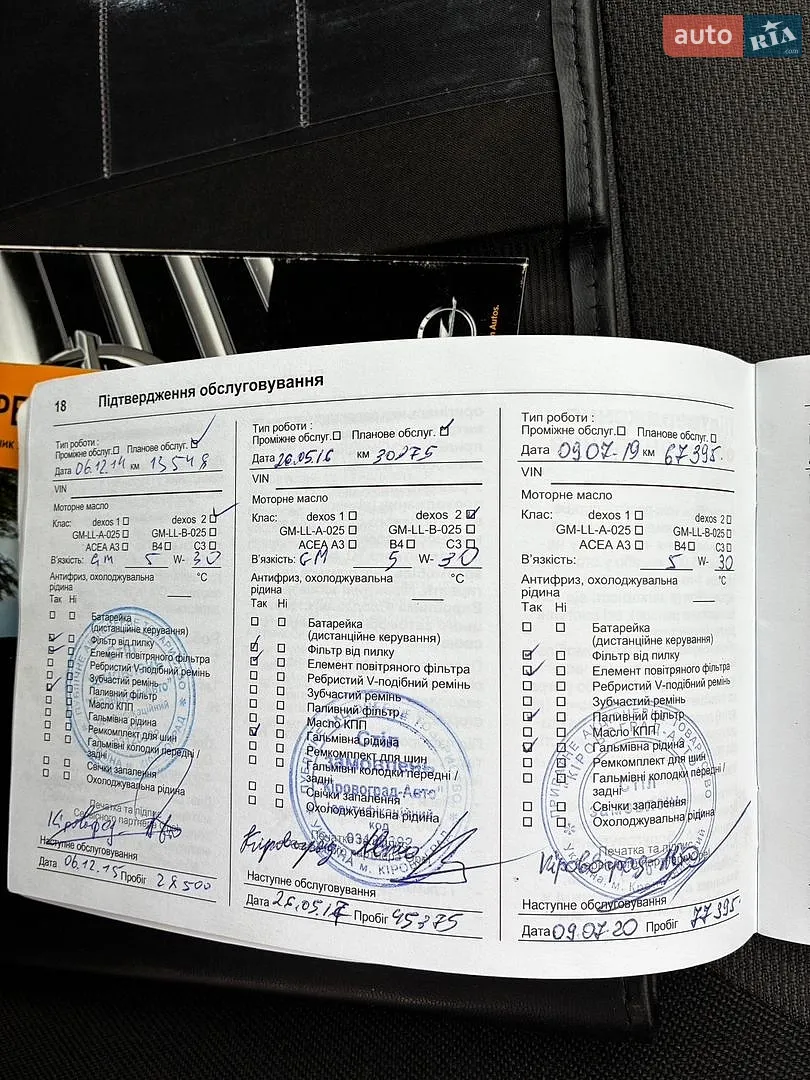 auto RIA
.com
n Autos.
18 Підтвердження обслуговування
Тип роботи :
Проміжне обслуг.☐ Планове обслуг.☑
Дата 06.12.14 км 13548
VIN
Моторне масло
Клас: dexos 1☐ dexos 2☑
GM-LL-A-025☐ GM-LL-B-025☐
ACEA A3☐ B4☐ C3☐
В'язкість: GM 5 W- 30
Антифриз, охолоджувальна °C
рідина
Так Ні
Батарейка
(дистанційне керування)
Фільтр від пилку
Елемент повітряного фільтра
Ребристий V-подібний ремінь
Зубчастий ремінь
Паливний фільтр
Масло КПП
Гальмівна рідина
Ремкомплект для шин
Гальмівні колодки передні /
задні
Свічки запалення
Охолоджувальна рідина
Печатка та підпис
Сервісного партнера
Кіровоград
Наступне обслуговування
Дата 06.12.15 Пробіг 28500
Тип роботи :
Проміжне обслуг.☐ Планове обслуг.☑
Дата 26.05.16 км 30275
VIN
Моторне масло
Клас: dexos 1☐ dexos 2☑
GM-LL-A-025☐ GM-LL-B-025☐
ACEA A3☐ B4☐ C3☐
В'язкість: GM 5 W- 30
Антифриз, охолоджувальна °C
рідина
Так Ні
Батарейка
(дистанційне керування)
Фільтр від пилку
Елемент повітряного фільтра
Ребристий V-подібний ремінь
Зубчастий ремінь
Паливний фільтр
Масло КПП
Гальмівна рідина
Ремкомплект для шин
Гальмівні колодки передні /
задні
Свічки запалення
Охолоджувальна рідина
Стіл
замовлень
Кіровоград-Авто
код
Україна м. Кіровоград
Печатка
Кіровоград
Наступне обслуговування
Дата 26.05.17 Пробіг 45275
Тип роботи :
Проміжне обслуг.☐ Планове обслуг.☐
Дата 09.07-19 км 67395.
VIN
Моторне масло
Клас: dexos 1☐ dexos 2☐
GM-LL-A-025☐ GM-LL-B-025☐
ACEA A3☐ B4☐ C3☐
В'язкість: 5 W- 30
Антифриз, охолоджувальна °C
рідина
Так Ні
Батарейка
(дистанційне керування)
Фільтр від пилку
Елемент повітряного фільтра
Ребристий V-подібний ремінь
Зубчастий ремінь
Паливний фільтр
Масло КПП
Гальмівна рідина
Ремкомплект для шин
Гальмівні колодки передні /
задні
Свічки запалення
Охолоджувальна рідина
Печатка та підпис
Кіровоград
Наступне обслуговування
Дата 09.07.20 Пробіг 77395.